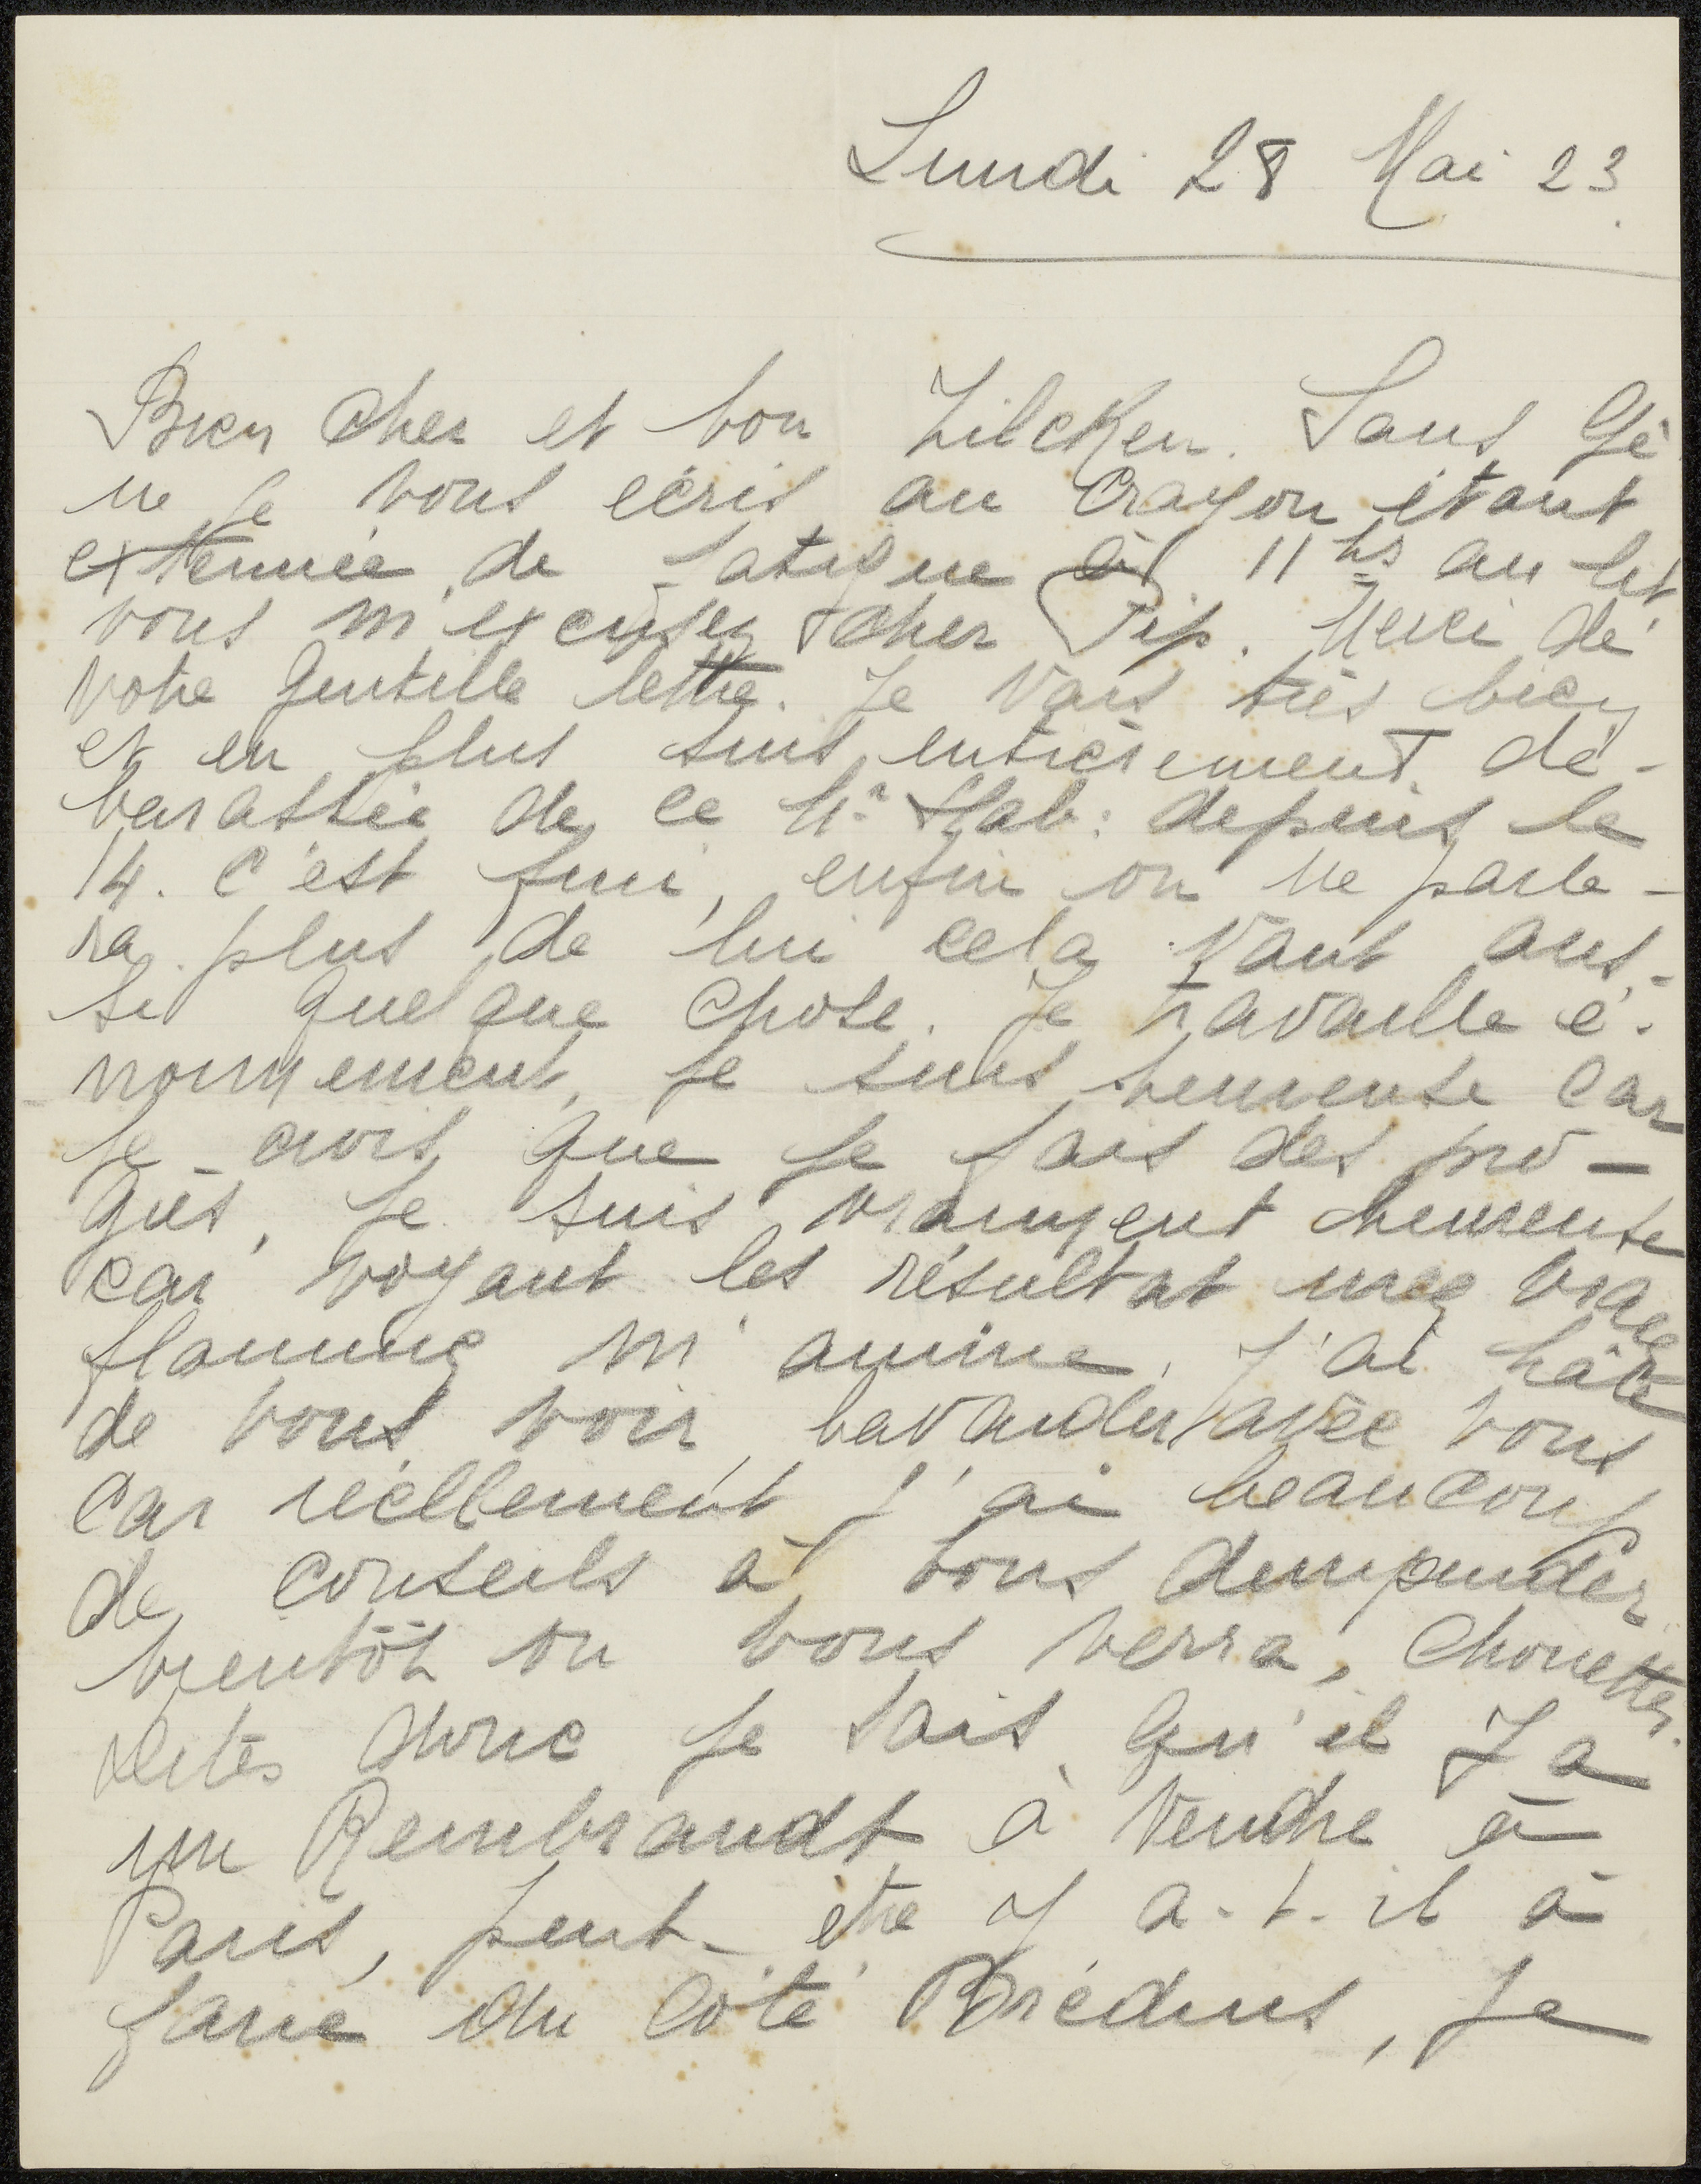 Lundi 28 Mai 23
Bien cher et bon Zilcken. Sans Gê
ne je vous écris au crayon étant
exténuée de fatigue à 11 hs au lit
vous m'excusez cher Pip. Merci de
votre gentille lettre. Je vais très bien
et en plus suis entièrement dé-
barassée de ce Mr depuis le
14. C'est fini, enfin on ne parle-
ra plus de lui cela vaut aus-
si quelque chose. Je travaille é-
normement, je suis heureuse car
je crois que je fais des pro-
grès, je suis vraiment heureuse
car voyant les résultat mes vrais
m'anime. J'ai hâte
de vous voir, bavarder avec vous
car réellement j'ai beaucoup
de conseils à vous demander
bientôt on vous verra, chouette.
dites donc je sais qu'il y a
un Rembrandt à vendre à
Paris, peut-être y a-t-il à
faire du côté Brédius, je